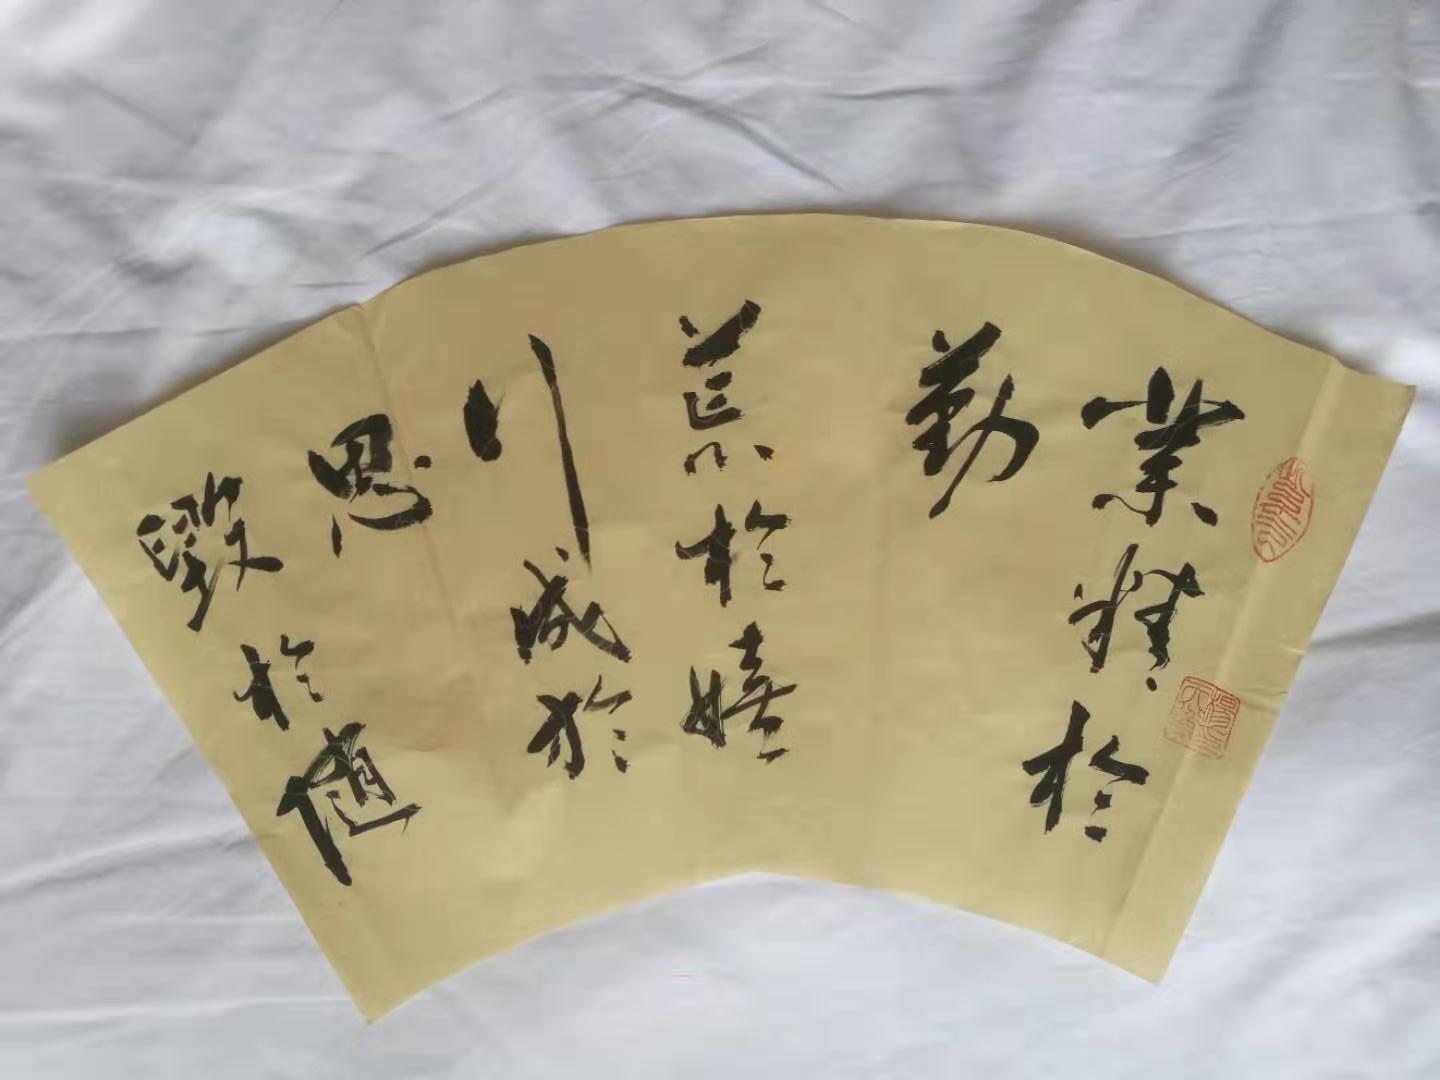 業精於
勤
荒於嬉
行成於
思
毀於随